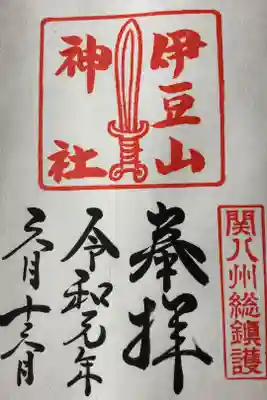 伊豆山
神社
関八州総鎮護
奉拝
令和元年
六月十六日